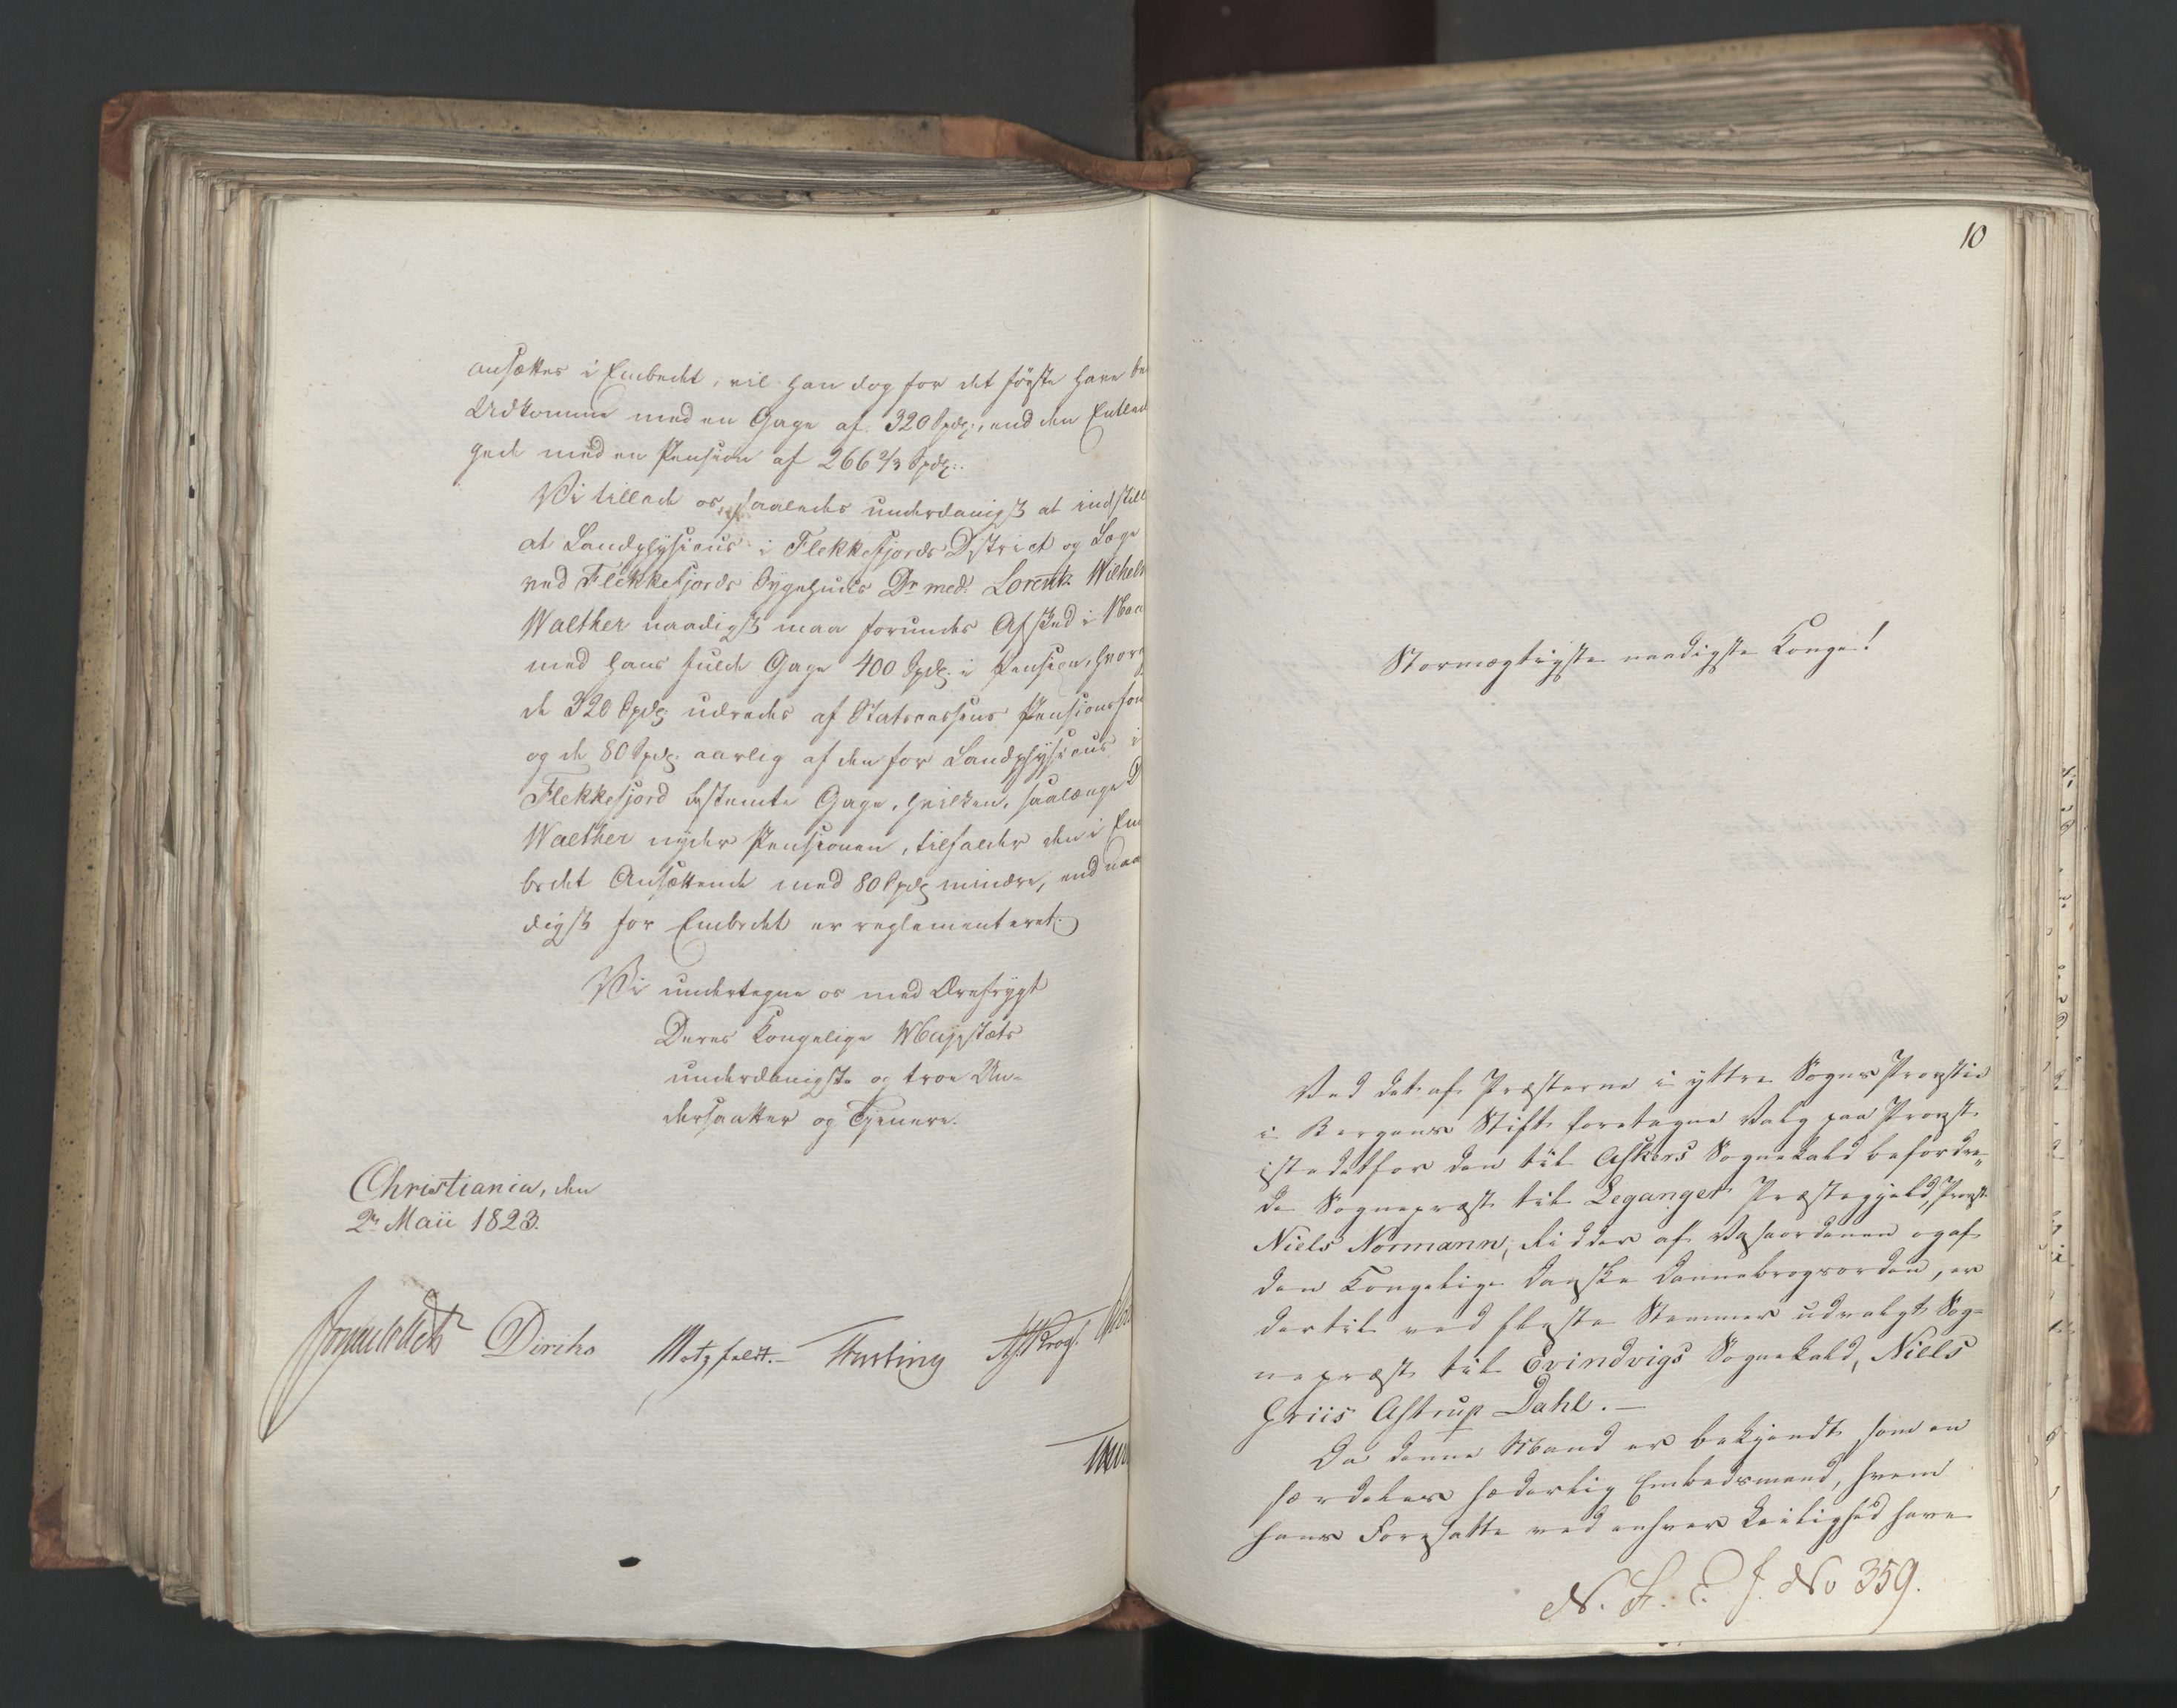 ansættes i Embedet, vil han dog for det første have
Udkomme med en Gage af 320 Spdlr., end den Entled
gede med en Pension af 266 2/3 Spdlr.
Vi tillade os, saaledes underdanigst at indstill
at Landphysicus i Flekkefjords District og Læge
ved Flekkefjords Sygehuus Dr med: Lorentz Wilhelm
Walther naadigst maa forundes Afsked i Naa
med hans fulde Gage 400 Spdlr. i Pension, hvor
de 320 Spdlr. udredes af Statscassens Pensionsfon
og de 80 Spdlr. aarlig af den for Landphysicus i
Flekkefjord bestemte Gage, hvilken, saalænge D
Walther nyder Pensionen, tilfalder den i Em
bedet Ansættende med 80 Spdlr. mindre, end naa
digst for Embedet er reglementeret.
Vi undertegne os med Ærefrygt
Deres Kongelige Majestæts
underdanigste og troe Un-
dersaatter og Tjenere.
Christiania, den
2n Maii 1823.
Diriks Motzfeldt. Krogh
10
Stormægtigste naadigste Konge!
Ved det af Præsterne i yttre Sogns Provstie
i Bergens Stift foretagne Valg paa Provst
istedetfor den til Askers Sognekald befordre-
de Sognepræst til Leganger Præstegjeld, Provst
Niels Normann, Ridder af Vasaordenen og af
den Kongelige Danske Dannebrogsorden, er
dertil ved fleste Stemmer udvalgt Sog-
nepræst til Evindvigs Sognekald, Niels
Griis Alstrup Dahl.-
Da denne Mand er bekjendt som en
særdeles hæderlig Embedsmand, hvem
hans Foresatte ved enhver Leilighed have
N. S. E. J. No 359.